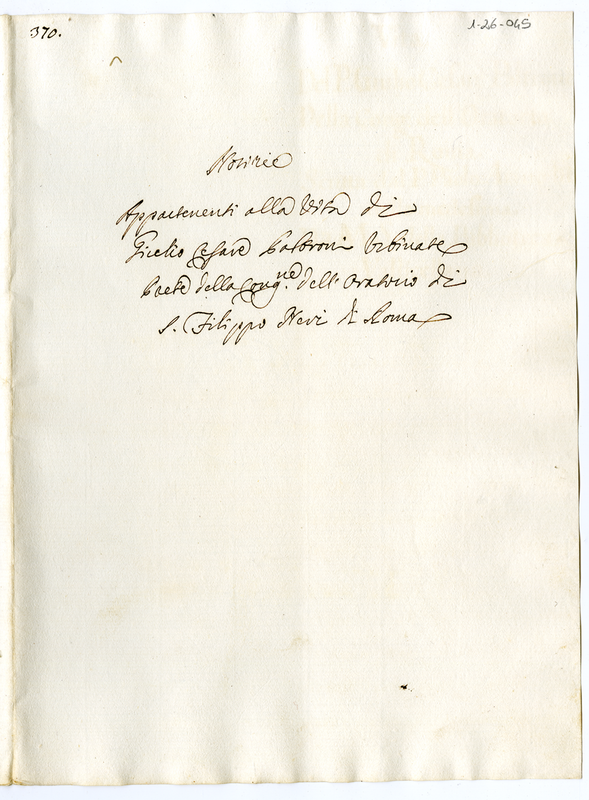 370.
1-26-045
Notizie
Appartenenti alla Vita di
Giulio Cesare Urbinate
Prete della Congne. dell' Oratorio di
S. Filippo Neri di Roma